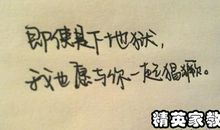 即使是下地狱，
我也愿与你一起猖獗。
精英家教